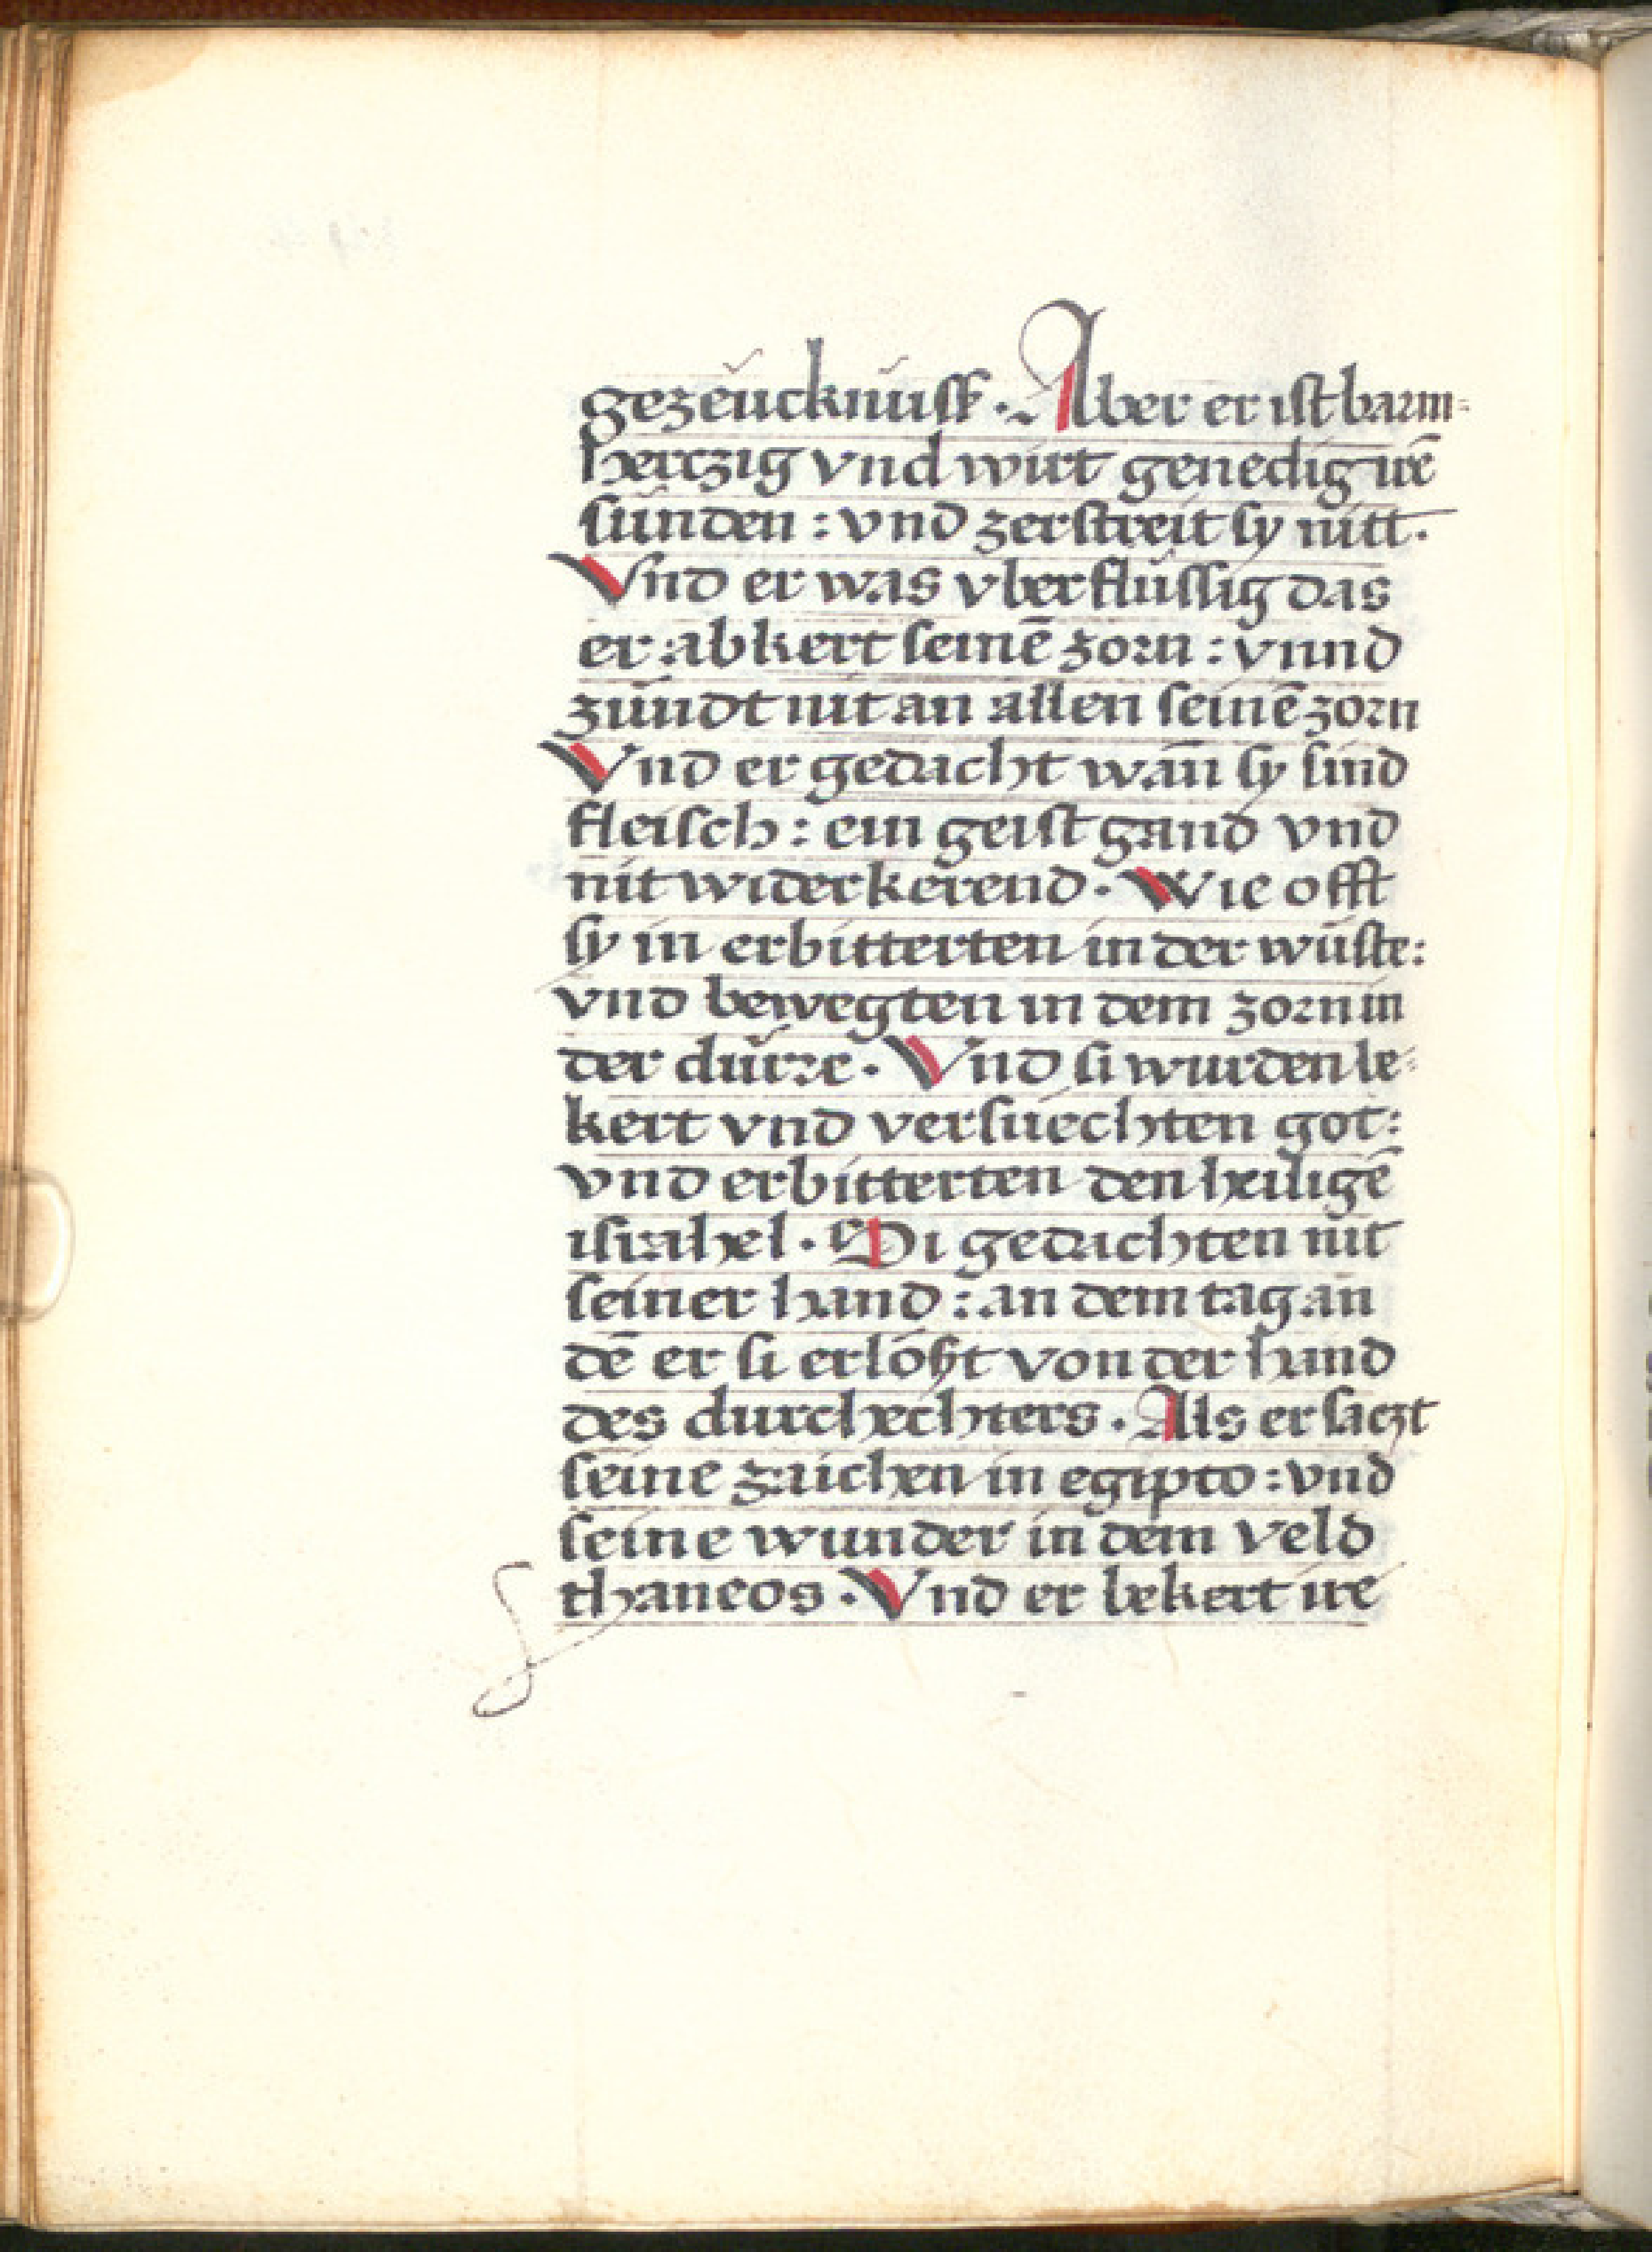 gezeücknüss · Aber er ist barm=
herczig vnd wirt genedig irē
sünden : vnd zerstreit sy nitt ·
Vnd er was vberflüssig das
er abkert seinē zorn : vnnd
zündt nit an allen seinē zorn
Vnd er gedacht wān sy sind
fleisch : ein geist gand vnd
nit widerkerend · Wie offt
sy in erbitterten in der wüste :
vnd bewegten in dem zorn in
der dürre · Vnd si wurden be=
kert vnd versuechten got :
vnd erbitterten den heiligē
israhel · Si gedachten nit
seiner hand : an dem tag an
dē er si erlößt von der hand
des durchechters · Als er saczt
seine zaichen in egipto : vnd
seine wunder in dem veld
thaneos · Vnd er bekert ire